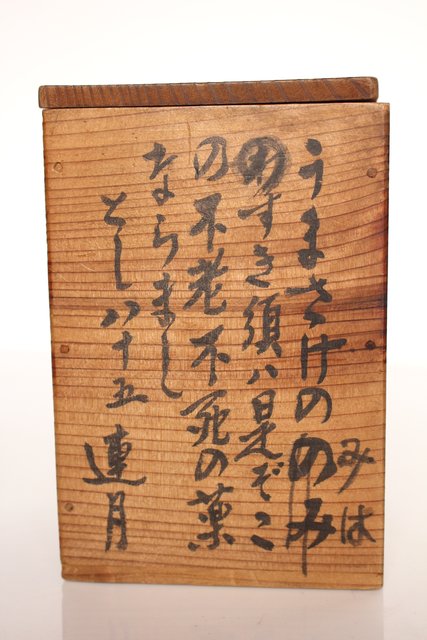 うまさけののみ
みは
のすき須ハ是ぞこ
の不老不死の薬
ならまし
とし八十五 連月